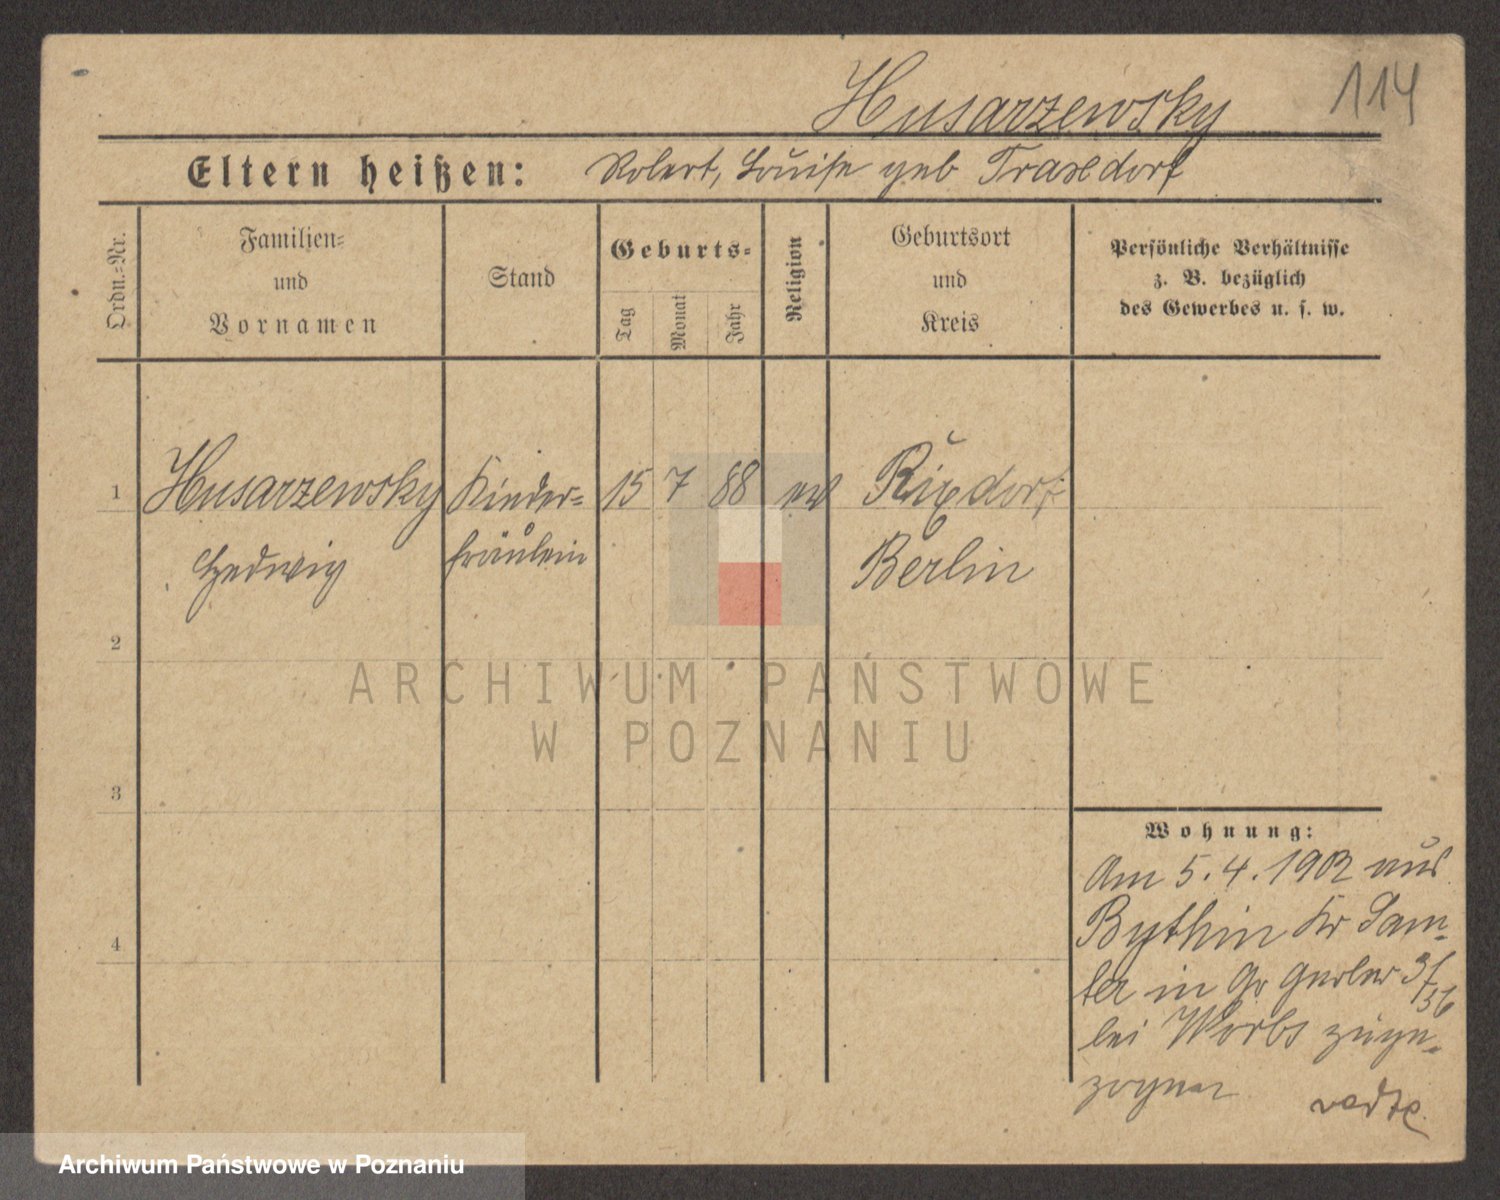 Husarzewsky
114
Eltern heißen: Robert, Louise geb Traxdorf
Ordn.-Nr.
Familien-
und
Vornamen
Stand
Geburts-
Tag
Monat
Jahr
Religion
Geburtsort
und
Kreis
Persönliche Verhältnisse
z. B. bezüglich
des Gewerbes u. s. w.
1 Husarzewsky Kinder- 15 7 88 ev Rixdorf
Hedwig fräulein Berlin
2
3
4
Wohnung:
Am 5.4.1902 aus
Bythin Kr Sam-
ter in Gr Gerber
bei Worbs zuge-
zogen
ARCHIWUM PAŃSTWOWE
W POZNANIU
Archiwum Państwowe w Poznaniu